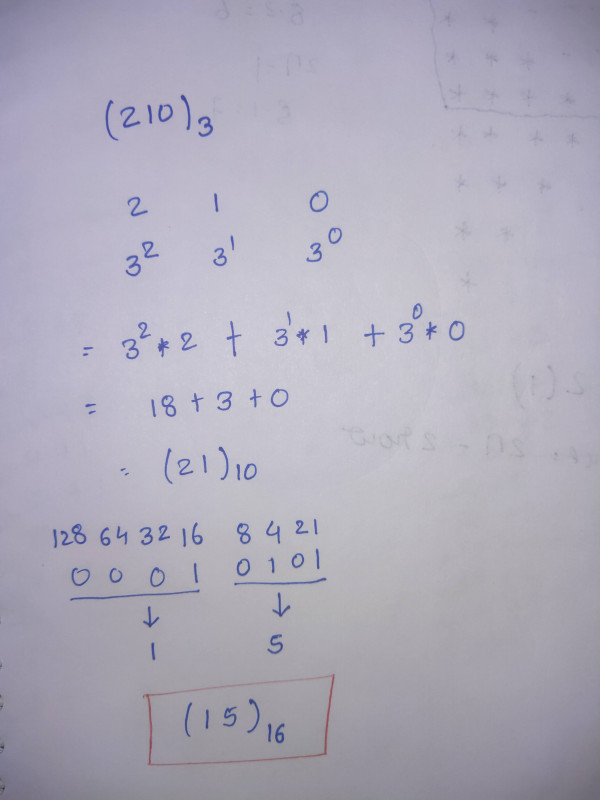 (210)₃
2 1 0
3² 3¹ 3⁰
= 3² * 2 + 3¹ * 1 + 3⁰ * 0
= 18 + 3 + 0
= (21)₁₀
128 64 32 16 8 4 2 1
0 0 0 1 0 1 0 1
↓ ↓
1 5
(15)₁₆